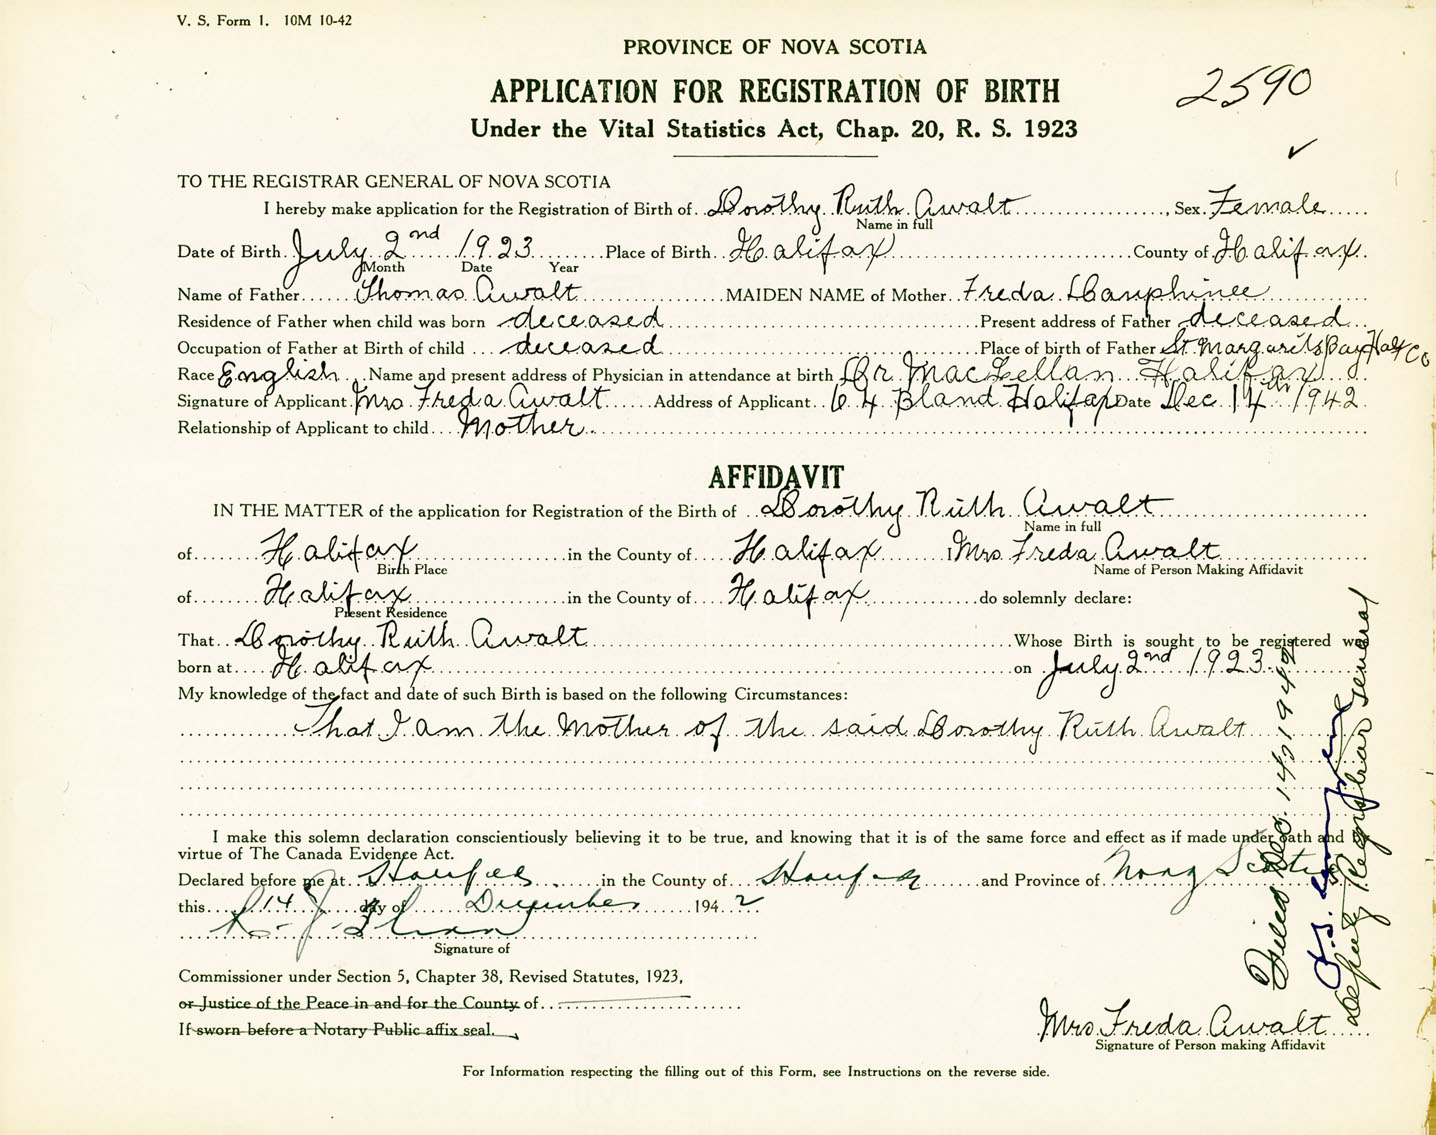 V. S. Form 1. 10M 10-42
PROVINCE OF NOVA SCOTIA
APPLICATION FOR REGISTRATION OF BIRTH
2590
Under the Vital Statistics Act, Chap. 20, R. S. 1923
✓
TO THE REGISTRAR GENERAL OF NOVA SCOTIA
I hereby make application for the Registration of Birth of Dorothy Ruth Awalt, Sex Female
Name in full
Date of Birth July 2nd 1923 Place of Birth Halifax County of Halifax
Month Date Year
Name of Father Thomas Awalt MAIDEN NAME of Mother Freda Dauphinee
Residence of Father when child was born deceased Present address of Father deceased
Occupation of Father at Birth of child deceased Place of birth of Father St. Margarets Bay Hfx Co
Race English Name and present address of Physician in attendance at birth Dr MacLellan Halifax
Signature of Applicant Mrs Freda Awalt Address of Applicant 64 Bland Halifax Date Dec 14th 1942
Relationship of Applicant to child Mother
AFFIDAVIT
IN THE MATTER of the application for Registration of the Birth of Dorothy Ruth Awalt
Name in full
of Halifax in the County of Halifax I Mrs Freda Awalt
Birth Place Name of Person Making Affidavit
of Halifax in the County of Halifax do solemnly declare:
Present Residence
That Dorothy Ruth Awalt Whose Birth is sought to be registered was
born at Halifax on July 2nd 1923
My knowledge of the fact and date of such Birth is based on the following Circumstances:
That I am the Mother of the said Dorothy Ruth Awalt
I make this solemn declaration conscientiously believing it to be true, and knowing that it is of the same force and effect as if made under oath and by
virtue of The Canada Evidence Act.
Declared before me at Halifax in the County of Halifax and Province of Nova Scotia
this 14 day of December 1942
Signature of
Commissioner under Section 5, Chapter 38, Revised Statutes, 1923,
or Justice of the Peace in and for the County of
If sworn before a Notary Public affix seal.
Mrs. Freda Awalt
Signature of Person making Affidavit
For Information respecting the filling out of this Form, see Instructions on the reverse side.
Filed Dec. 14, 1942
Deputy Registrar General